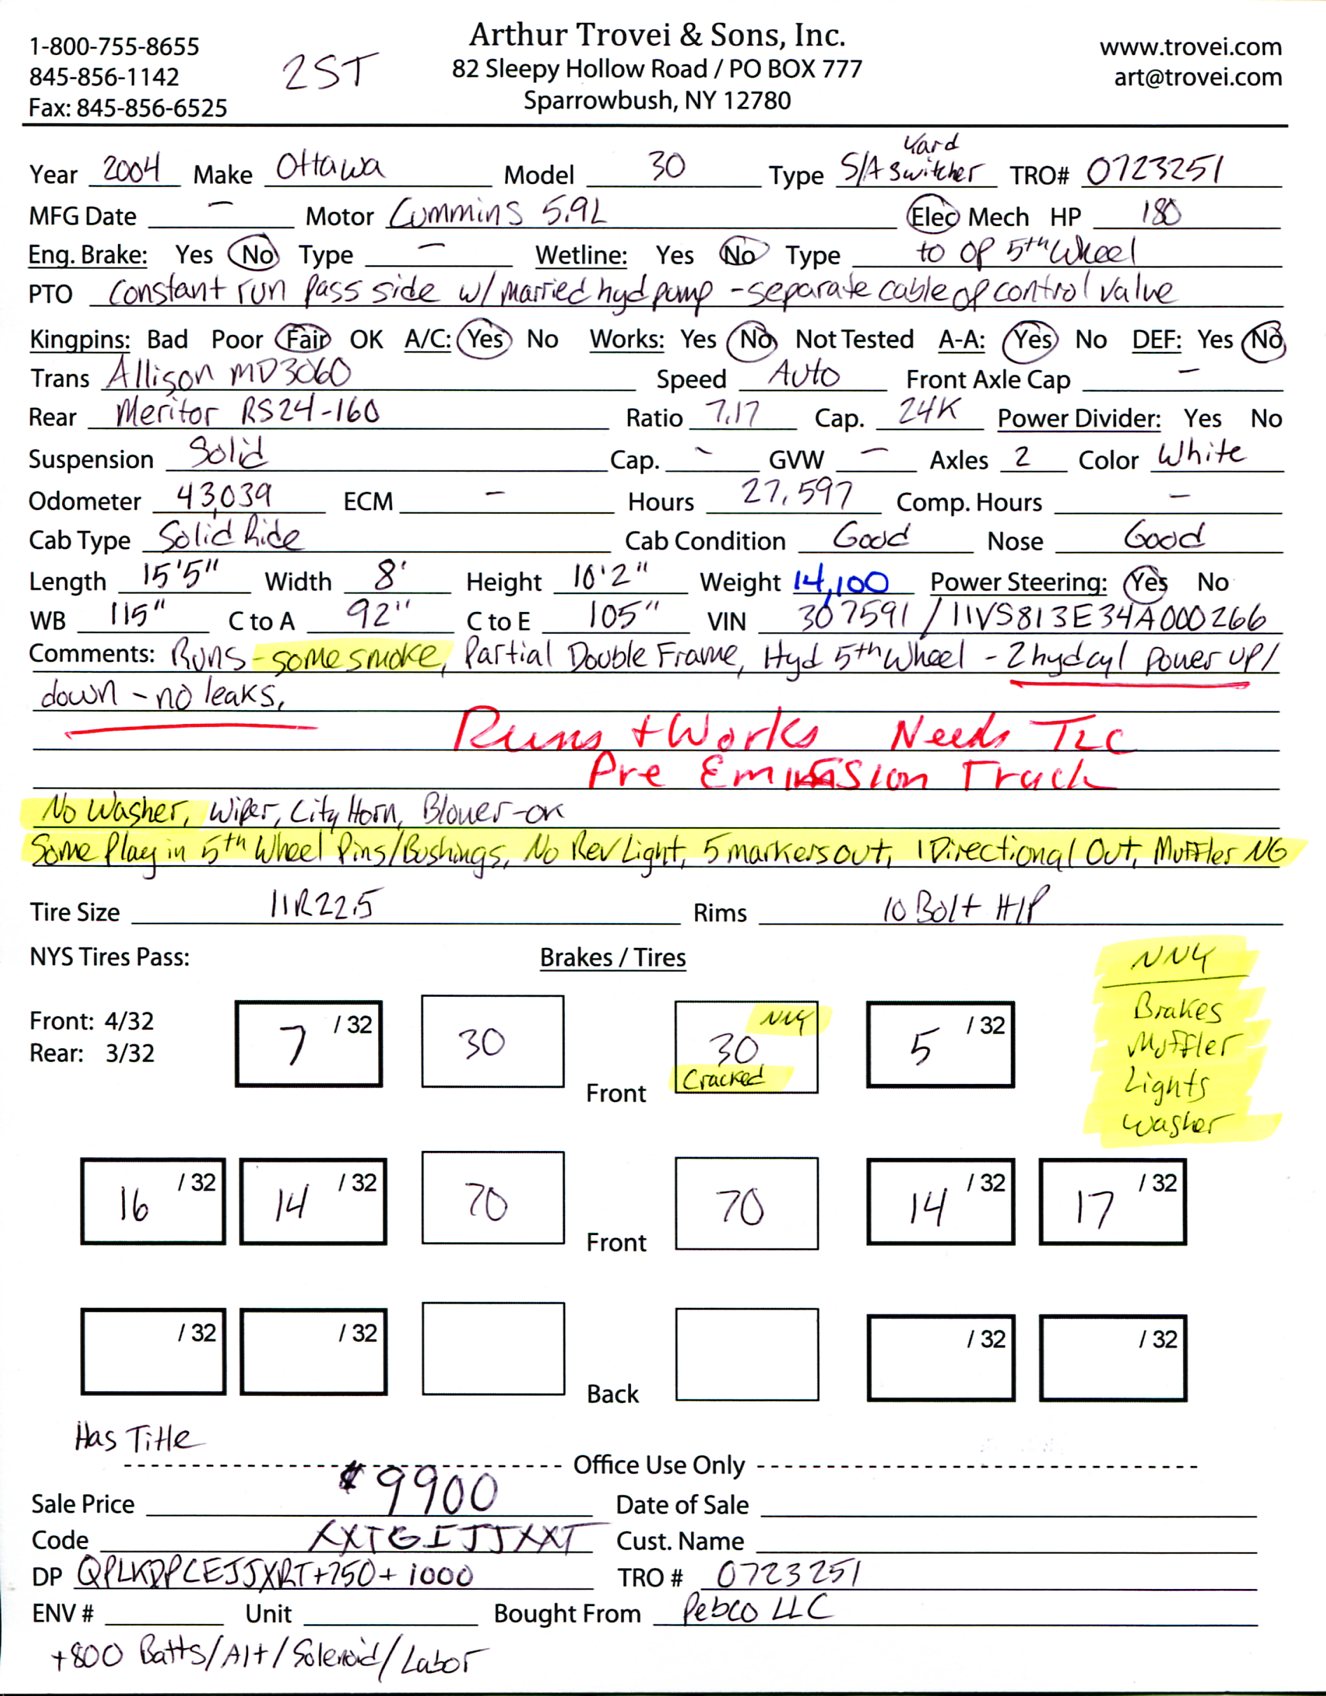 1-800-755-8655
845-856-1142
Fax: 845-856-6525
2ST
Arthur Trovei & Sons, Inc.
82 Sleepy Hollow Road / PO BOX 777
Sparrowbush, NY 12780
www.trovei.com
art@trovei.com
Year 2004 Make Ottawa Model 30 Type S/A Yard Switcher TRO# 0723251
MFG Date – Motor Cummins 5.9L Elec Mech HP 180
Eng. Brake: Yes No Type – Wetline: Yes No Type to op 5th Wheel
PTO Constant run pass side w/ married hyd pump - separate cable op control valve
Kingpins: Bad Poor Fair OK A/C: Yes No Works: Yes No Not Tested A-A: Yes No DEF: Yes No
Trans Allison MD3060 Speed Auto Front Axle Cap –
Rear Meritor RS24-160 Ratio 7.17 Cap. 24K Power Divider: Yes No
Suspension Solid Cap. - GVW – Axles 2 Color White
Odometer 43,039 ECM – Hours 27,597 Comp. Hours –
Cab Type Solid Ride Cab Condition Good Nose Good
Length 15'5" Width 8' Height 10'2" Weight 14,100 Power Steering: Yes No
WB 115" C to A 92" C to E 105" VIN 307591 / 11VS813E34A000266
Comments: Runs - some smoke, Partial Double Frame, Hyd 5th Wheel - 2 hyd cyl power up/
down - no leaks,
Runs + Works Needs TLC
Pre Emission Truck
No Washer, Wiper, City Horn, Blower-ok
Some Play in 5th Wheel Pins/Bushings, No Rev Light, 5 markers out, 1 Directional Out, Muffler NG
Tire Size 11R22.5 Rims 10 Bolt H/P
NYS Tires Pass: Brakes / Tires
Front: 4/32
Rear: 3/32
7 /32 30 Front 30 NNY Cracked 5 /32
NNY
Brakes
Muffler
Lights
Washer
16 /32 14 /32 70 Front 70 14 /32 17 /32
/32 /32 Back /32 /32
Has Title
Office Use Only
Sale Price $9900 Date of Sale
Code XXTGIJJXXT Cust. Name
DP QPLKDPCEJJXRT+750+1000 TRO # 0723251
ENV # Unit Bought From Pebco LLC
+800 Batts/Alt/Solenoid/Labor